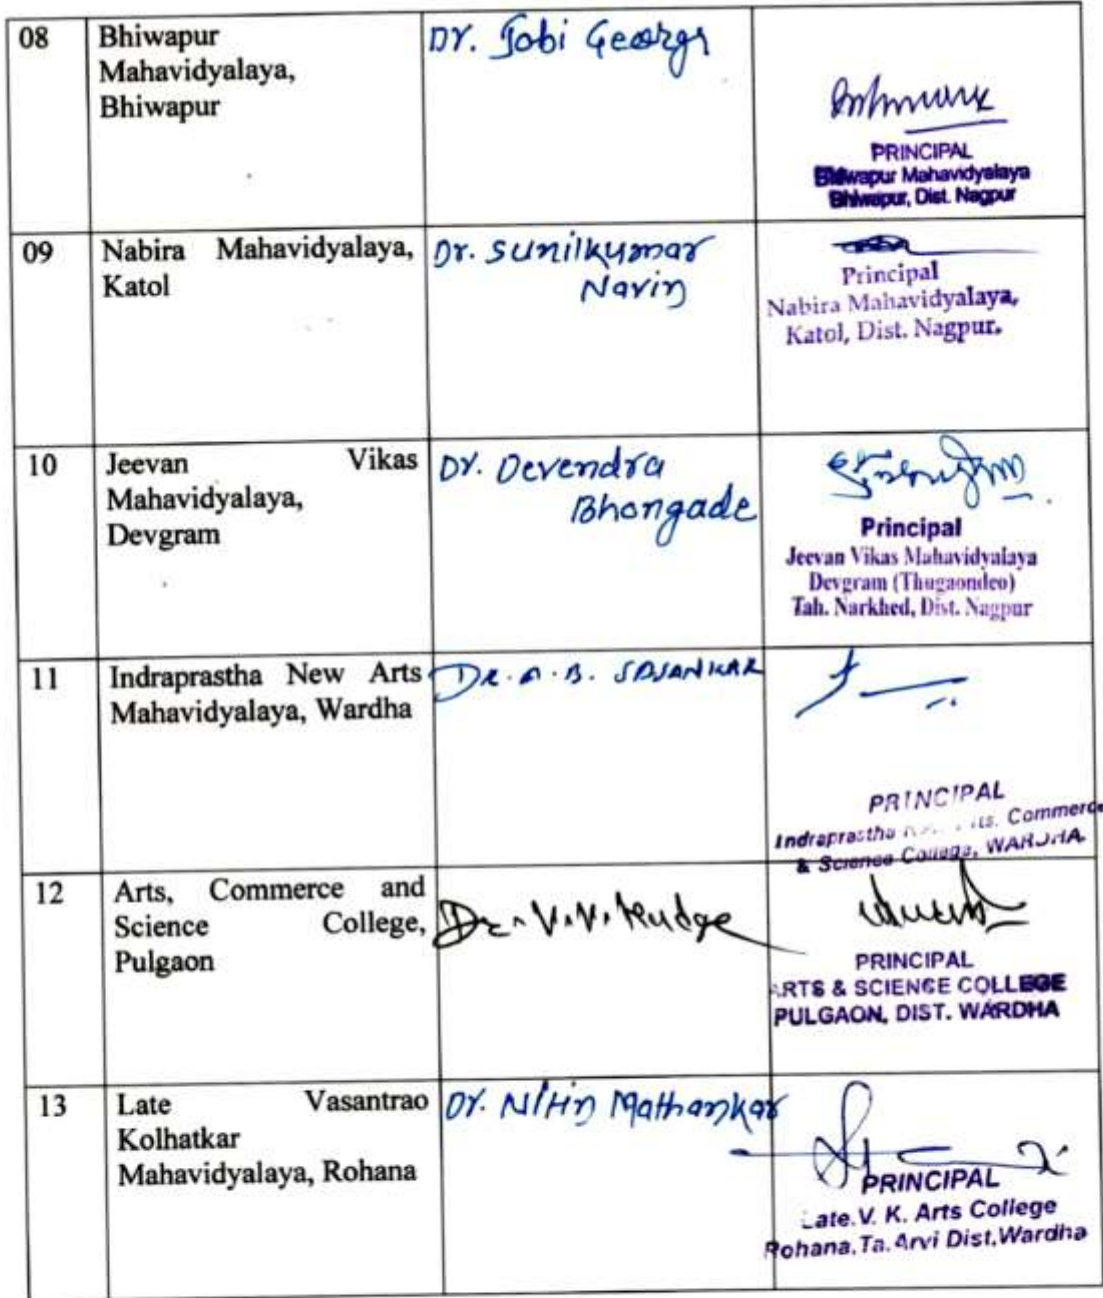 08
Bhiwapur
Mahavidyalaya,
Bhiwapur
Dr. Jobi George
PRINCIPAL
Bhiwapur Mahavidyalaya
Bhiwapur, Dist. Nagpur
09
Nabira Mahavidyalaya,
Katol
Dr. Sunilkumar
Navin
Principal
Nabira Mahavidyalaya,
Katol, Dist. Nagpur.
10
Jeevan Vikas
Mahavidyalaya,
Devgram
Dr. Devendra
Bhongade
Principal
Jeevan Vikas Mahavidyalaya
Devgram (Thugaondeo)
Tah. Narkhed, Dist. Nagpur
11
Indraprastha New Arts
Mahavidyalaya, Wardha
DR. A. B. SASANKAR
PRINCIPAL
Indraprastha Commerce
& Science College, WARDHA.
12
Arts, Commerce and
Science College,
Pulgaon
Dr. V.V. Mudge
PRINCIPAL
ARTS & SCIENCE COLLEGE
PULGAON, DIST. WARDHA
13
Late Vasantrao
Kolhatkar
Mahavidyalaya, Rohana
Dr. Nitin Mathankar
PRINCIPAL
Late.V. K. Arts College
Rohana,Ta.Arvi Dist,Wardha